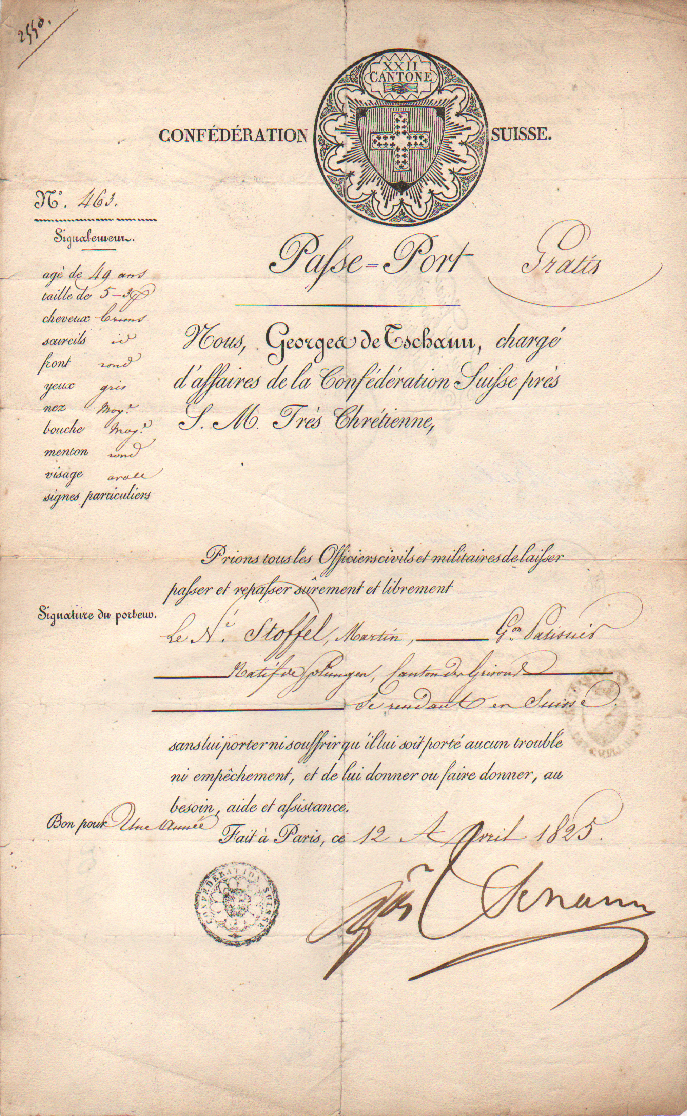 2550.
XXII
CANTONE
CONFÉDÉRATION SUISSE.
N.º 463.
Signalement.
agé de 49 ans
taille de 5-3
cheveux bruns
sourcils id
front rond
yeux gris
nez moy.n
bouche moy.e
menton rond
visage ovale
signes particuliers
Passe=Port Gratis
Nous, Georges de Tschann, chargé
d'affaires de la Confédération Suisse près
S. M. Très Chrétienne,
Prions tous les Officiers civils et militaires de laisser
passer et repasser sûrement et librement
Signature du porteur.
Le Stoffel, Martin, G.on Patissier
Natif de Canton des Grisons
Se rendant en Suisse
sans lui porter ni souffrir qu'il lui soit porté aucun trouble
ni empêchement, et de lui donner ou faire donner, au
besoin, aide et assistance.
Bon pour Une Année
Fait à Paris, ce 12 Avril 1825.
CONFÉDÉRATION SUISSE
Tschann